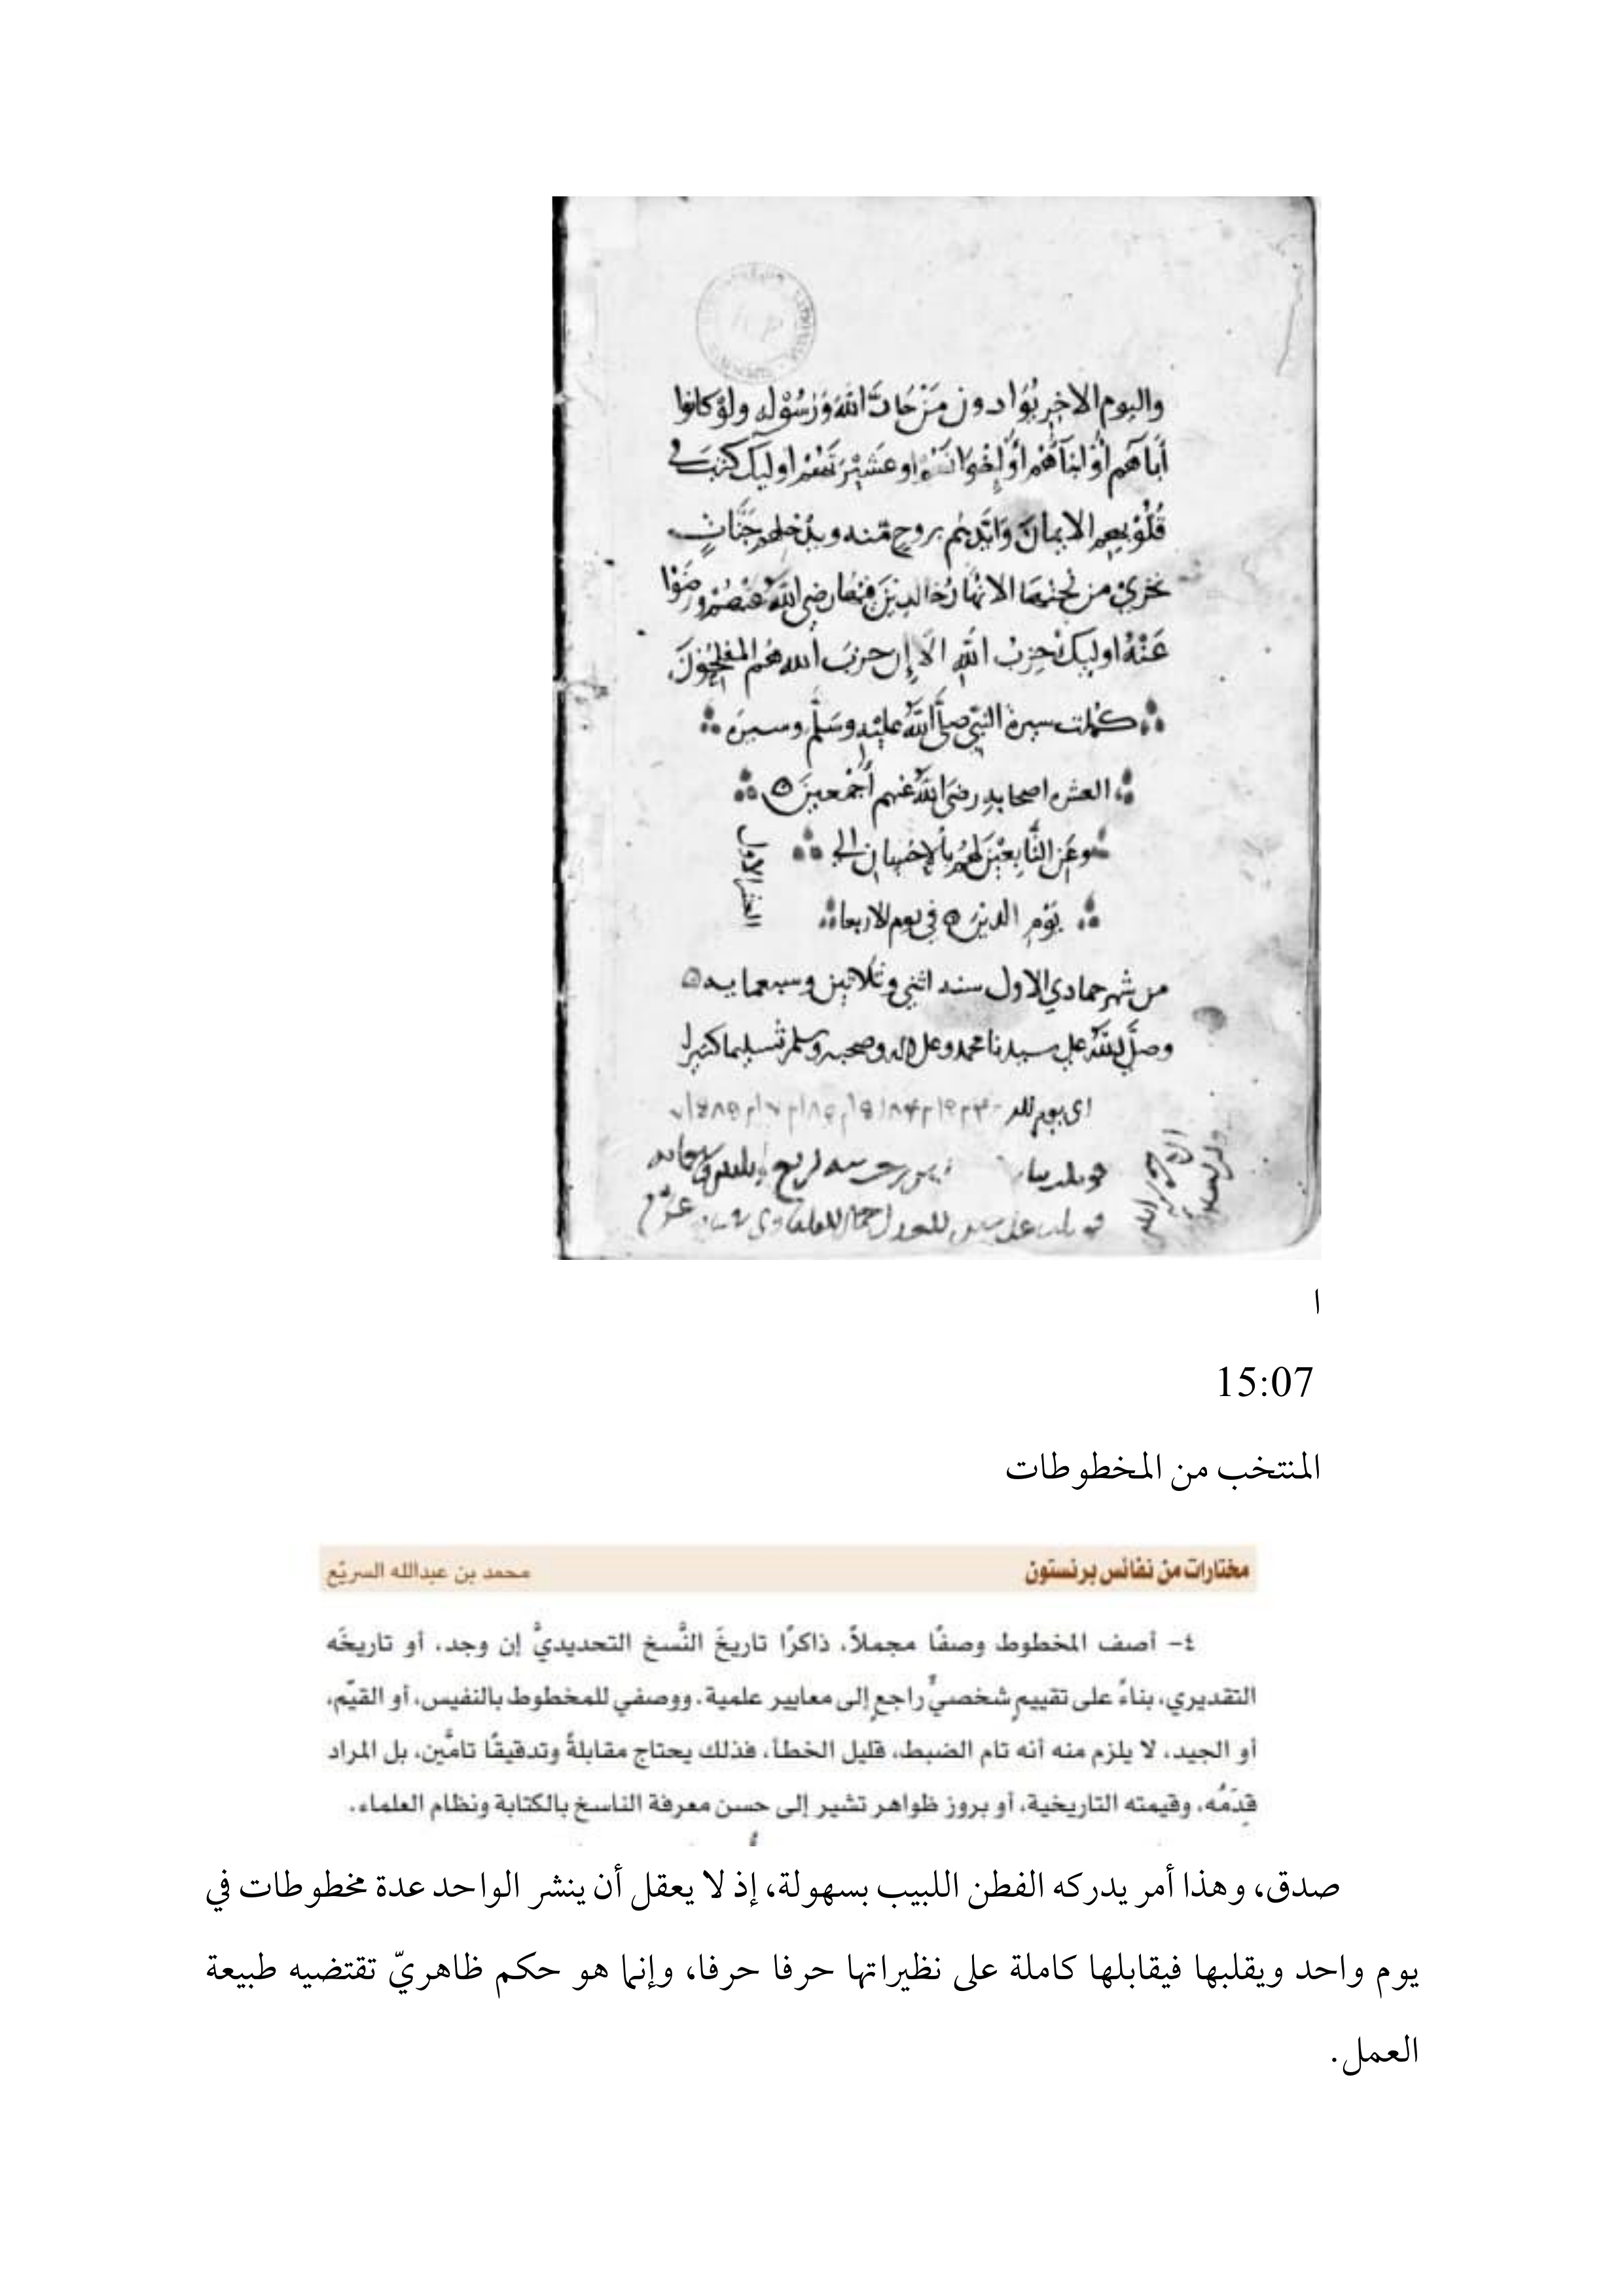 واليوم الاخر يُوَادون مَنْ حَادَّ اللهَ وَرَسُوْله ولَوْ كانوا
أَبآهم أَوْ ابنآهُم أوْ إخْوَانَهُم او عَشِيْرَتَهُمْ اوليك كتبَ في
قُلُوْبِهم الايمانَ وَايَّدهم بروحٍ مّنه ويُدْخلهم جَنَّاتٍ
تجْريْ من تحتِهَا الانْهَارُ خَالدِينَ فِيْهَا رضي اللهُ عَنْهُمْ ورضَوْا
عَنْهُ اوليكَ حِزبُ اللهِ الَا إن حزبَ الله هُم المفلحُوْنَ
كملت سيرة النبي صلَّى اللهُ عليْهِ وسَلَّم وسيرة
العشره اصحابه رضيَ اللهُ عنهم أَجْمعينَ
وعَن التَّابعيْنَ لهُمْ بالاحْسان الي
يَوْم الدينَ في يوم الاربعا
من شهر جمادي الاول سنه اثني وثلاثين وسبعمايه
وصلَّى اللهُ علي سيدنا محمد وعلى اله وصحبه وسلم تسليما كثيرا
ا
15:07
المنتخب من المخطوطات
مختارات من نفائس برنستون
محمد بن عبدالله السريّع
٤- أصف المخطوط وصفًا مجملاً، ذاكرًا تاريخَ النَّسخ التحديديَّ إن وجد، أو تاريخَه
التقديري، بناءً على تقييمٍ شخصيٍّ راجعٍ إلى معايير علمية. ووصفي للمخطوط بالنفيس، أو القيّم،
أو الجيد، لا يلزم منه أنه تام الضبط، قليل الخطأ، فذلك يحتاج مقابلةً وتدقيقًا تامَّين، بل المراد
قِدَمُه، وقيمته التاريخية، أو بروز ظواهر تشير إلى حسن معرفة الناسخ بالكتابة ونظام العلماء.
صدق، وهذا أمر يدركه الفطن اللبيب بسهولة، إذ لا يعقل أن ينشر الواحد عدة مخطوطات في
يوم واحد ويقلبها فيقابلها كاملة على نظيراتها حرفا حرفا، وإنما هو حكم ظاهريّ تقتضيه طبيعة
العمل.